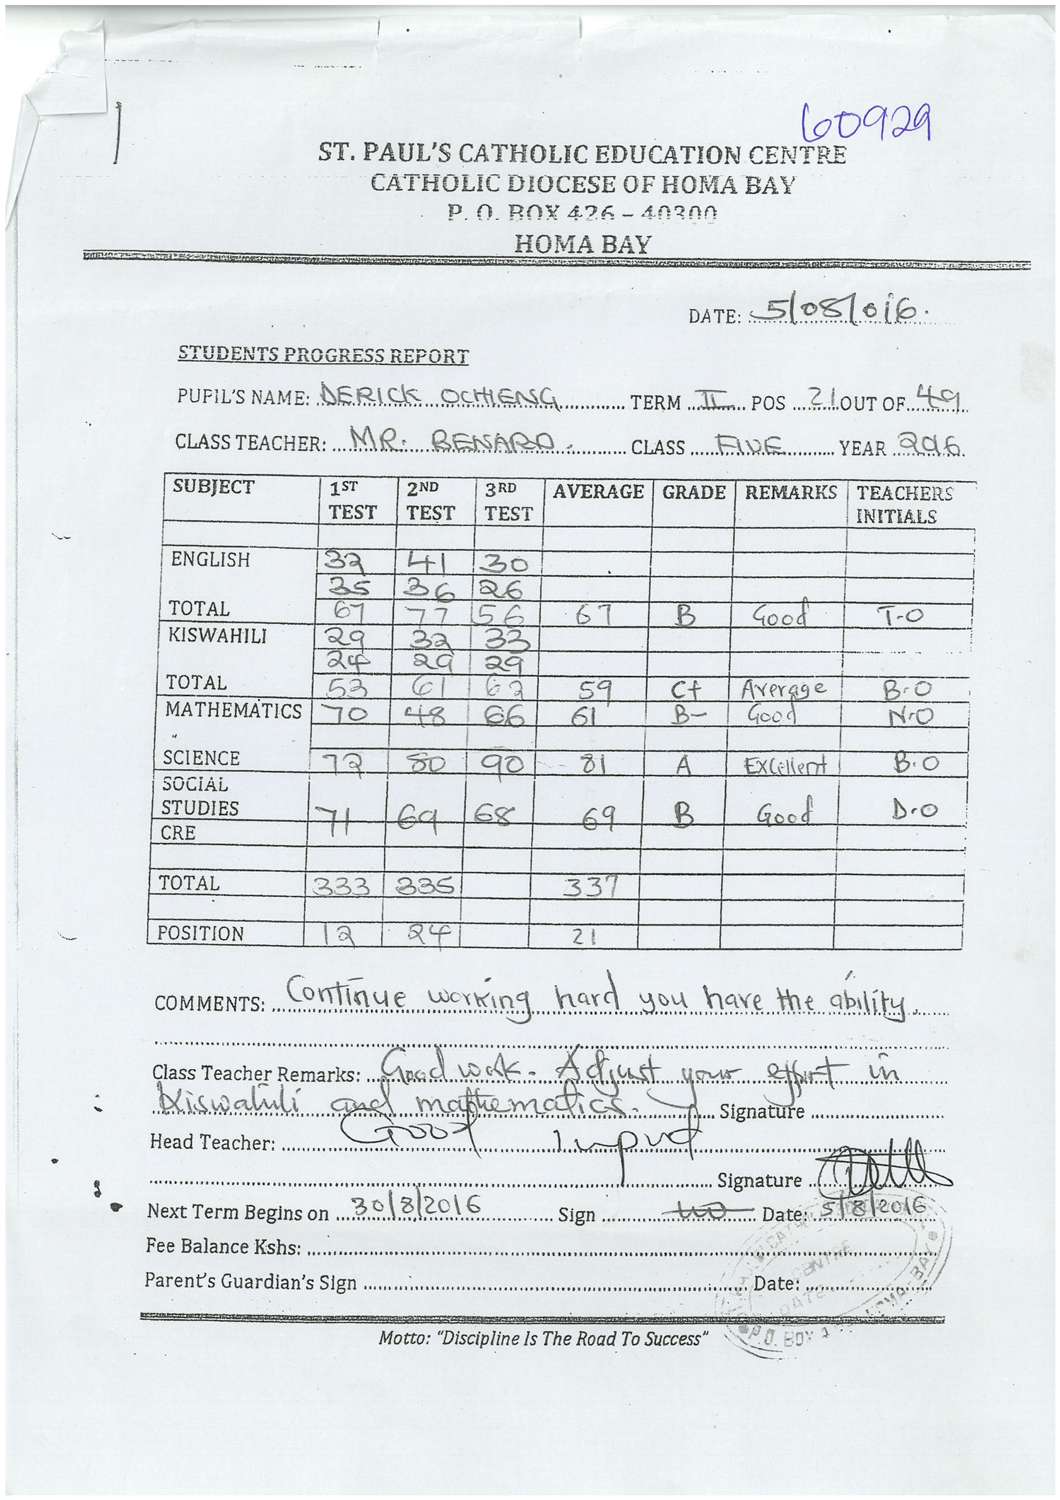 60929
ST. PAUL'S CATHOLIC EDUCATION CENTRE
CATHOLIC DIOCESE OF HOMA BAY
P. O. BOX 426 – 40300
HOMA BAY
DATE: 5/08/016.
STUDENTS PROGRESS REPORT
PUPIL'S NAME: DERICK OCHIENG TERM II POS 21 OUT OF 49
CLASS TEACHER: MR. BENARD. CLASS FIVE YEAR 2016
SUBJECT 1ST TEST 2ND TEST 3RD TEST AVERAGE GRADE REMARKS TEACHERS INITIALS
ENGLISH 32 41 30
35 36 26
TOTAL 67 77 56 67 B Good T-O
KISWAHILI 29 32 33
24 29 29
TOTAL 53 61 62 59 C+ Average B.O
MATHEMATICS 70 48 66 61 B- Good N.O
"
SCIENCE 72 80 90 81 A Excellent B.O
SOCIAL
STUDIES 71 69 68 69 B Good D.O
CRE
TOTAL 333 335 337
POSITION 12 24 21
COMMENTS: Continue working hard you have the ability.
Class Teacher Remarks: Good work. Adjust your effort in
Kiswahili and mathematics. Signature
Head Teacher: Good input
Signature
Next Term Begins on 30/8/2016 Sign Date: 5/8/2016
Fee Balance Kshs:
Parent's Guardian's Sign Date:
Motto: "Discipline Is The Road To Success"
CENTRE
DATE
P.O. BOX